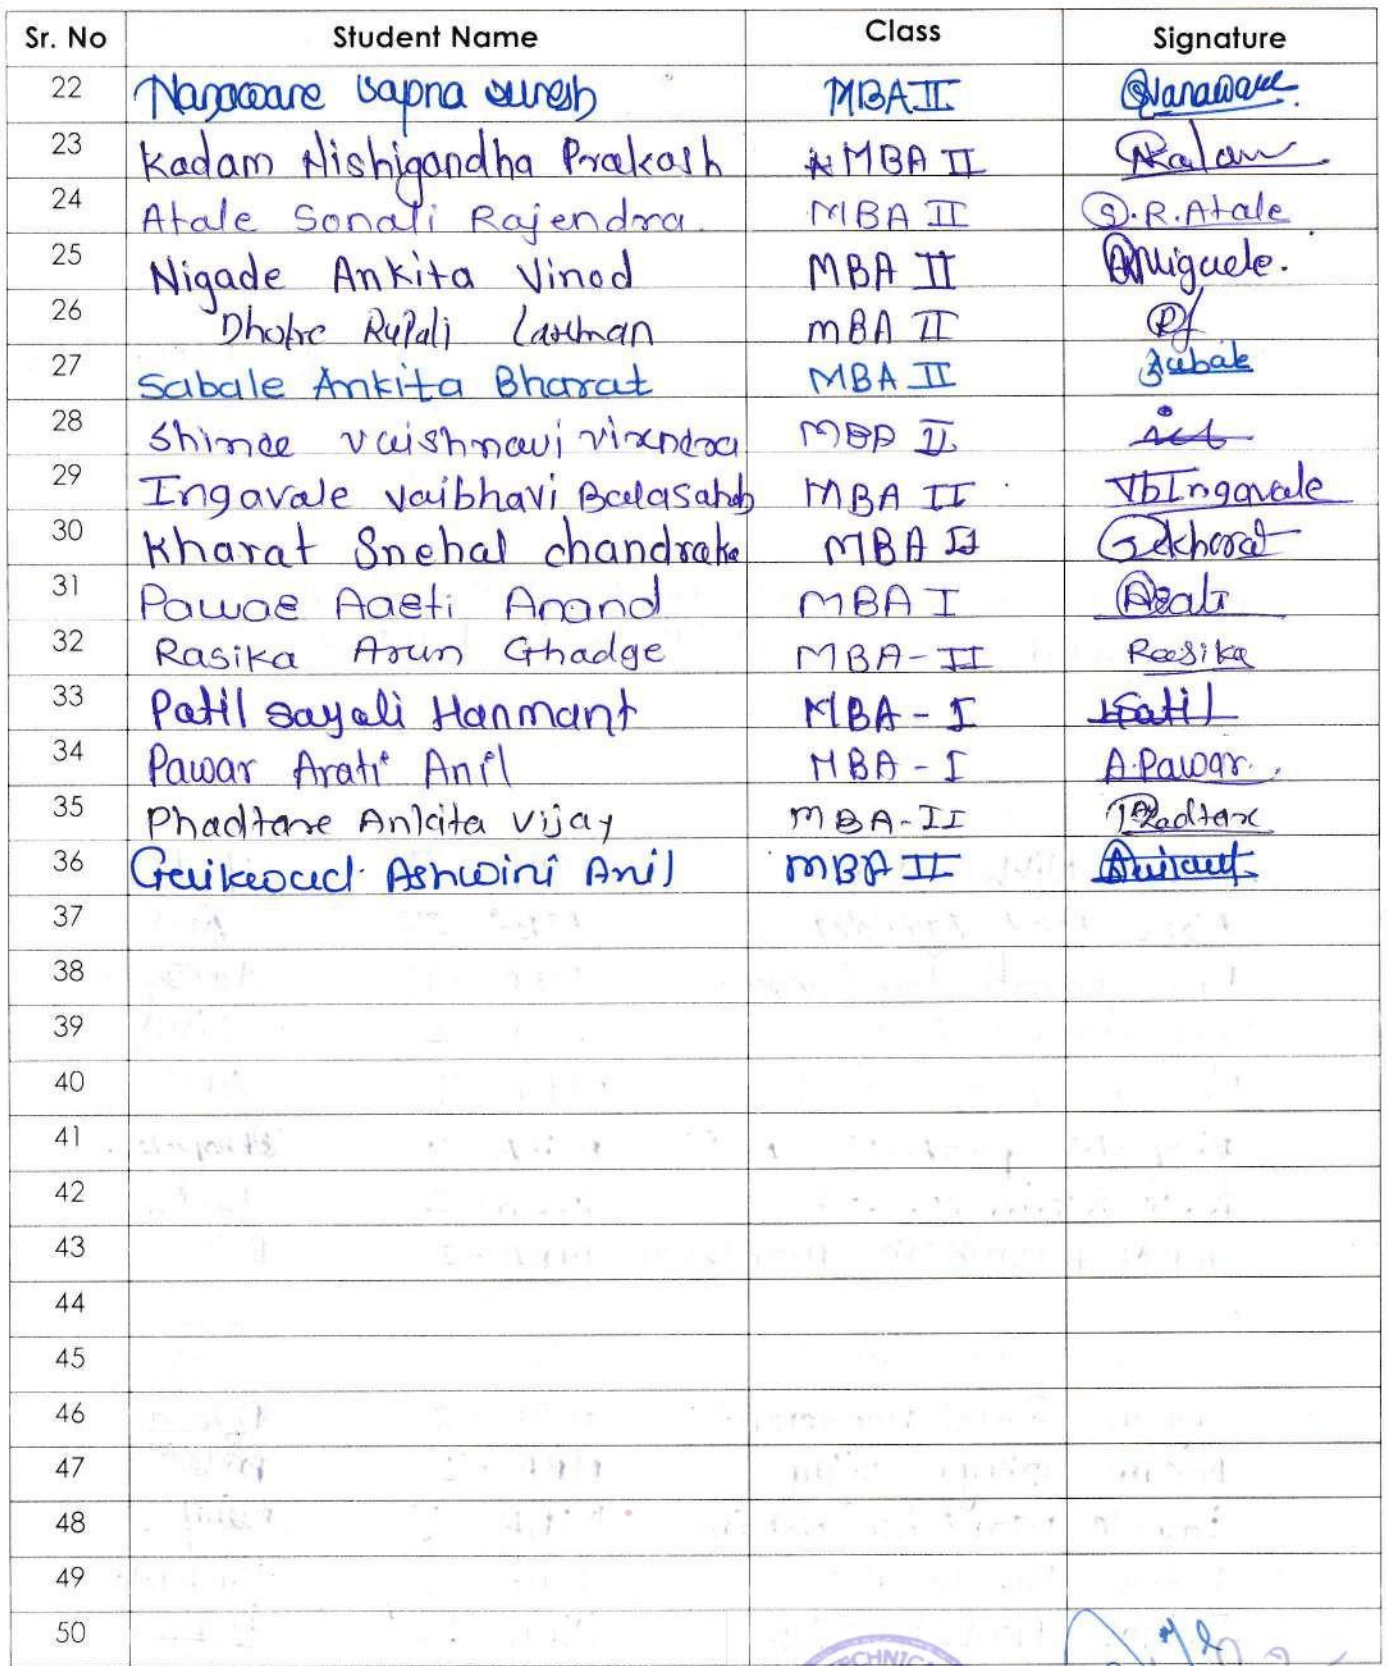 Sr. No Student Name Class Signature
22 Nanaware Sapna Suresh MBA II
23 Kadam Nishigandha Prakash MBA II
24 Atale Sonali Rajendra MBA II S.R.Atale
25 Nigade Ankita Vinod MBA II
26 Dhobre Rupali Laxman MBA II
27 Sabale Ankita Bharat MBA II
28 Shinde Vaishnavi Virendra MBA II
29 Ingavale Vaibhavi Balasaheb MBA II VbIngavale
30 Kharat Snehal chandraka MBA II
31 Pawar Aarti Anand MBA I
32 Rasika Arun Ghadge MBA-II Rasika
33 Patil Sayali Hanmant MBA - I
34 Pawar Arati Anil MBA - I A.Pawar.
35 Phadtare Ankita Vijay MBA-II
36 Gaikwad Ashwini Anil MBA II
37
38
39
40
41
42
43
44
45
46
47
48
49
50